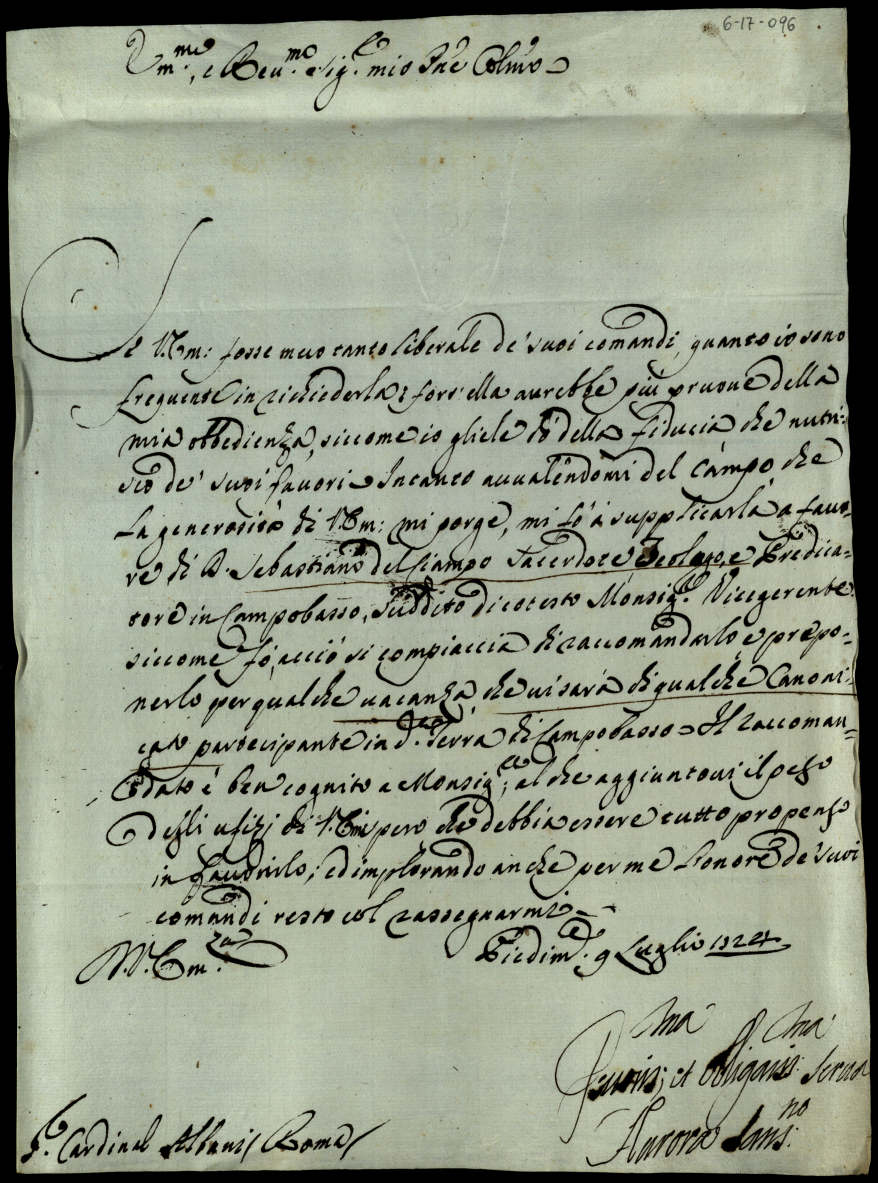 6-17-096
Em.mo, e Reu.mo Sig.re mio Pne Colmo
Se V.Em: fosse meco tanto liberale de' suoi comandi, quanto io sono
frequente in richiederla; fors'ella aurebbe più pruoue della
mia obbedienza, siccome io gliele dò della fiducia che nutri-
sco de' suoi fauori. Intanto auualendomi del campo che
la generosità di V.Em: mi porge, mi fò à supplicarla a fauo-
re di D. Sebastiano del Ciampo Sacerdote, Teologo, e Predica-
tore in Campobasso, suddito di cotesto Monsig.re Vicegerente
siccome fò, acciò si compiaccia di raccomandarlo e propo-
nerlo per qualche uacanza, che ui sarà di qualche Canoni-
cato partecipante in d.a Terra di Campobasso. Il raccoman-
dato è ben cognito a Monsig.re, al che aggiuntoui il peso
degli ufizj di V.Em. spero che debbia essere tutto propenso
in fauorirlo; ed implorando anche per me l'onore de' suoi
comandi resto col rassegnarmi
Di V.Em.za
Piedim.te 9 Luglio 1724
Deuotis.ma et Obligatis.ma Serua
Aurora Sans.no
S.r Cardinal Albani / Roma /